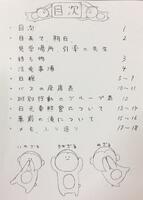 目次
・目次 1
・日系で 期日 2
見学場所 引率の先生
・持ち物 3
・注意事項 4
・日程 5~9
・バスの座席表 10~11
・班別行動のグループ表 12
・日光東照宮について 13~14
・華厳の滝について 15~16
・メモ、ふり返り 17~18
いわざる
きかざる
みざる